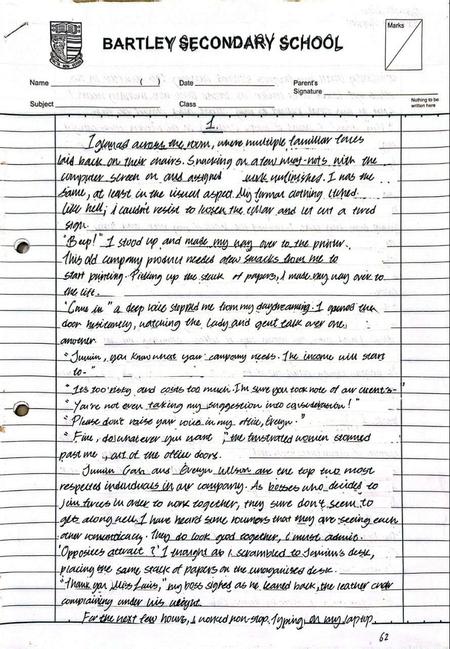 BARTLEY SECONDARY SCHOOL
Marks
Name ( ) Date Parent's
Signature
Subject Class Nothing to be
written here
1.
I glanced across the room, where multiple familiar faces
laid back on their chairs. Snacking on a few with the
computer screen on and assigned work unfinished. I was the
same, at least in the visual aspect. My formal clothing itched
like hell, I couldn't resist to loosen the collar and let out a tired
sigh.
"Beep!" I stood up and made my way over to the printer.
This old company product needed a few smacks from me to
start printing. Picking up the stack of papers, I made my way over to
the lift.
"Come in" a deep voice stopped me from my daydreaming. I opened the
door hesitantly, watching the lady and gent talk over one
another.
" you know what your company needs. The income will start
to-"
"Its too risky and costs too much. I'm sure you took note of our clients-"
"You're not even taking my suggestion into consideration!"
"Please don't raise your voice in my office, Evelyn."
"Fine, do whatever you want", the frustrated women stormed
past me, out of the office doors.
and Evelyn Wilson are the top two most
respected individuals in our company. As bosses who decided to
join forces in order to work together, they sure don't seem to
get along well. I have heard some rumours that they are seeing each
other romantically. They do look good together, I must admit.
'Opposites attract?' I thought as I scrambled to desk,
placing the same stack of papers on the unorganised desk.
"Thank you, Miss" my boss sighed as he leaned back, the leather chair
complaining under his weight.
For the next few hours, I worked non-stop. Typing on my laptop,
62